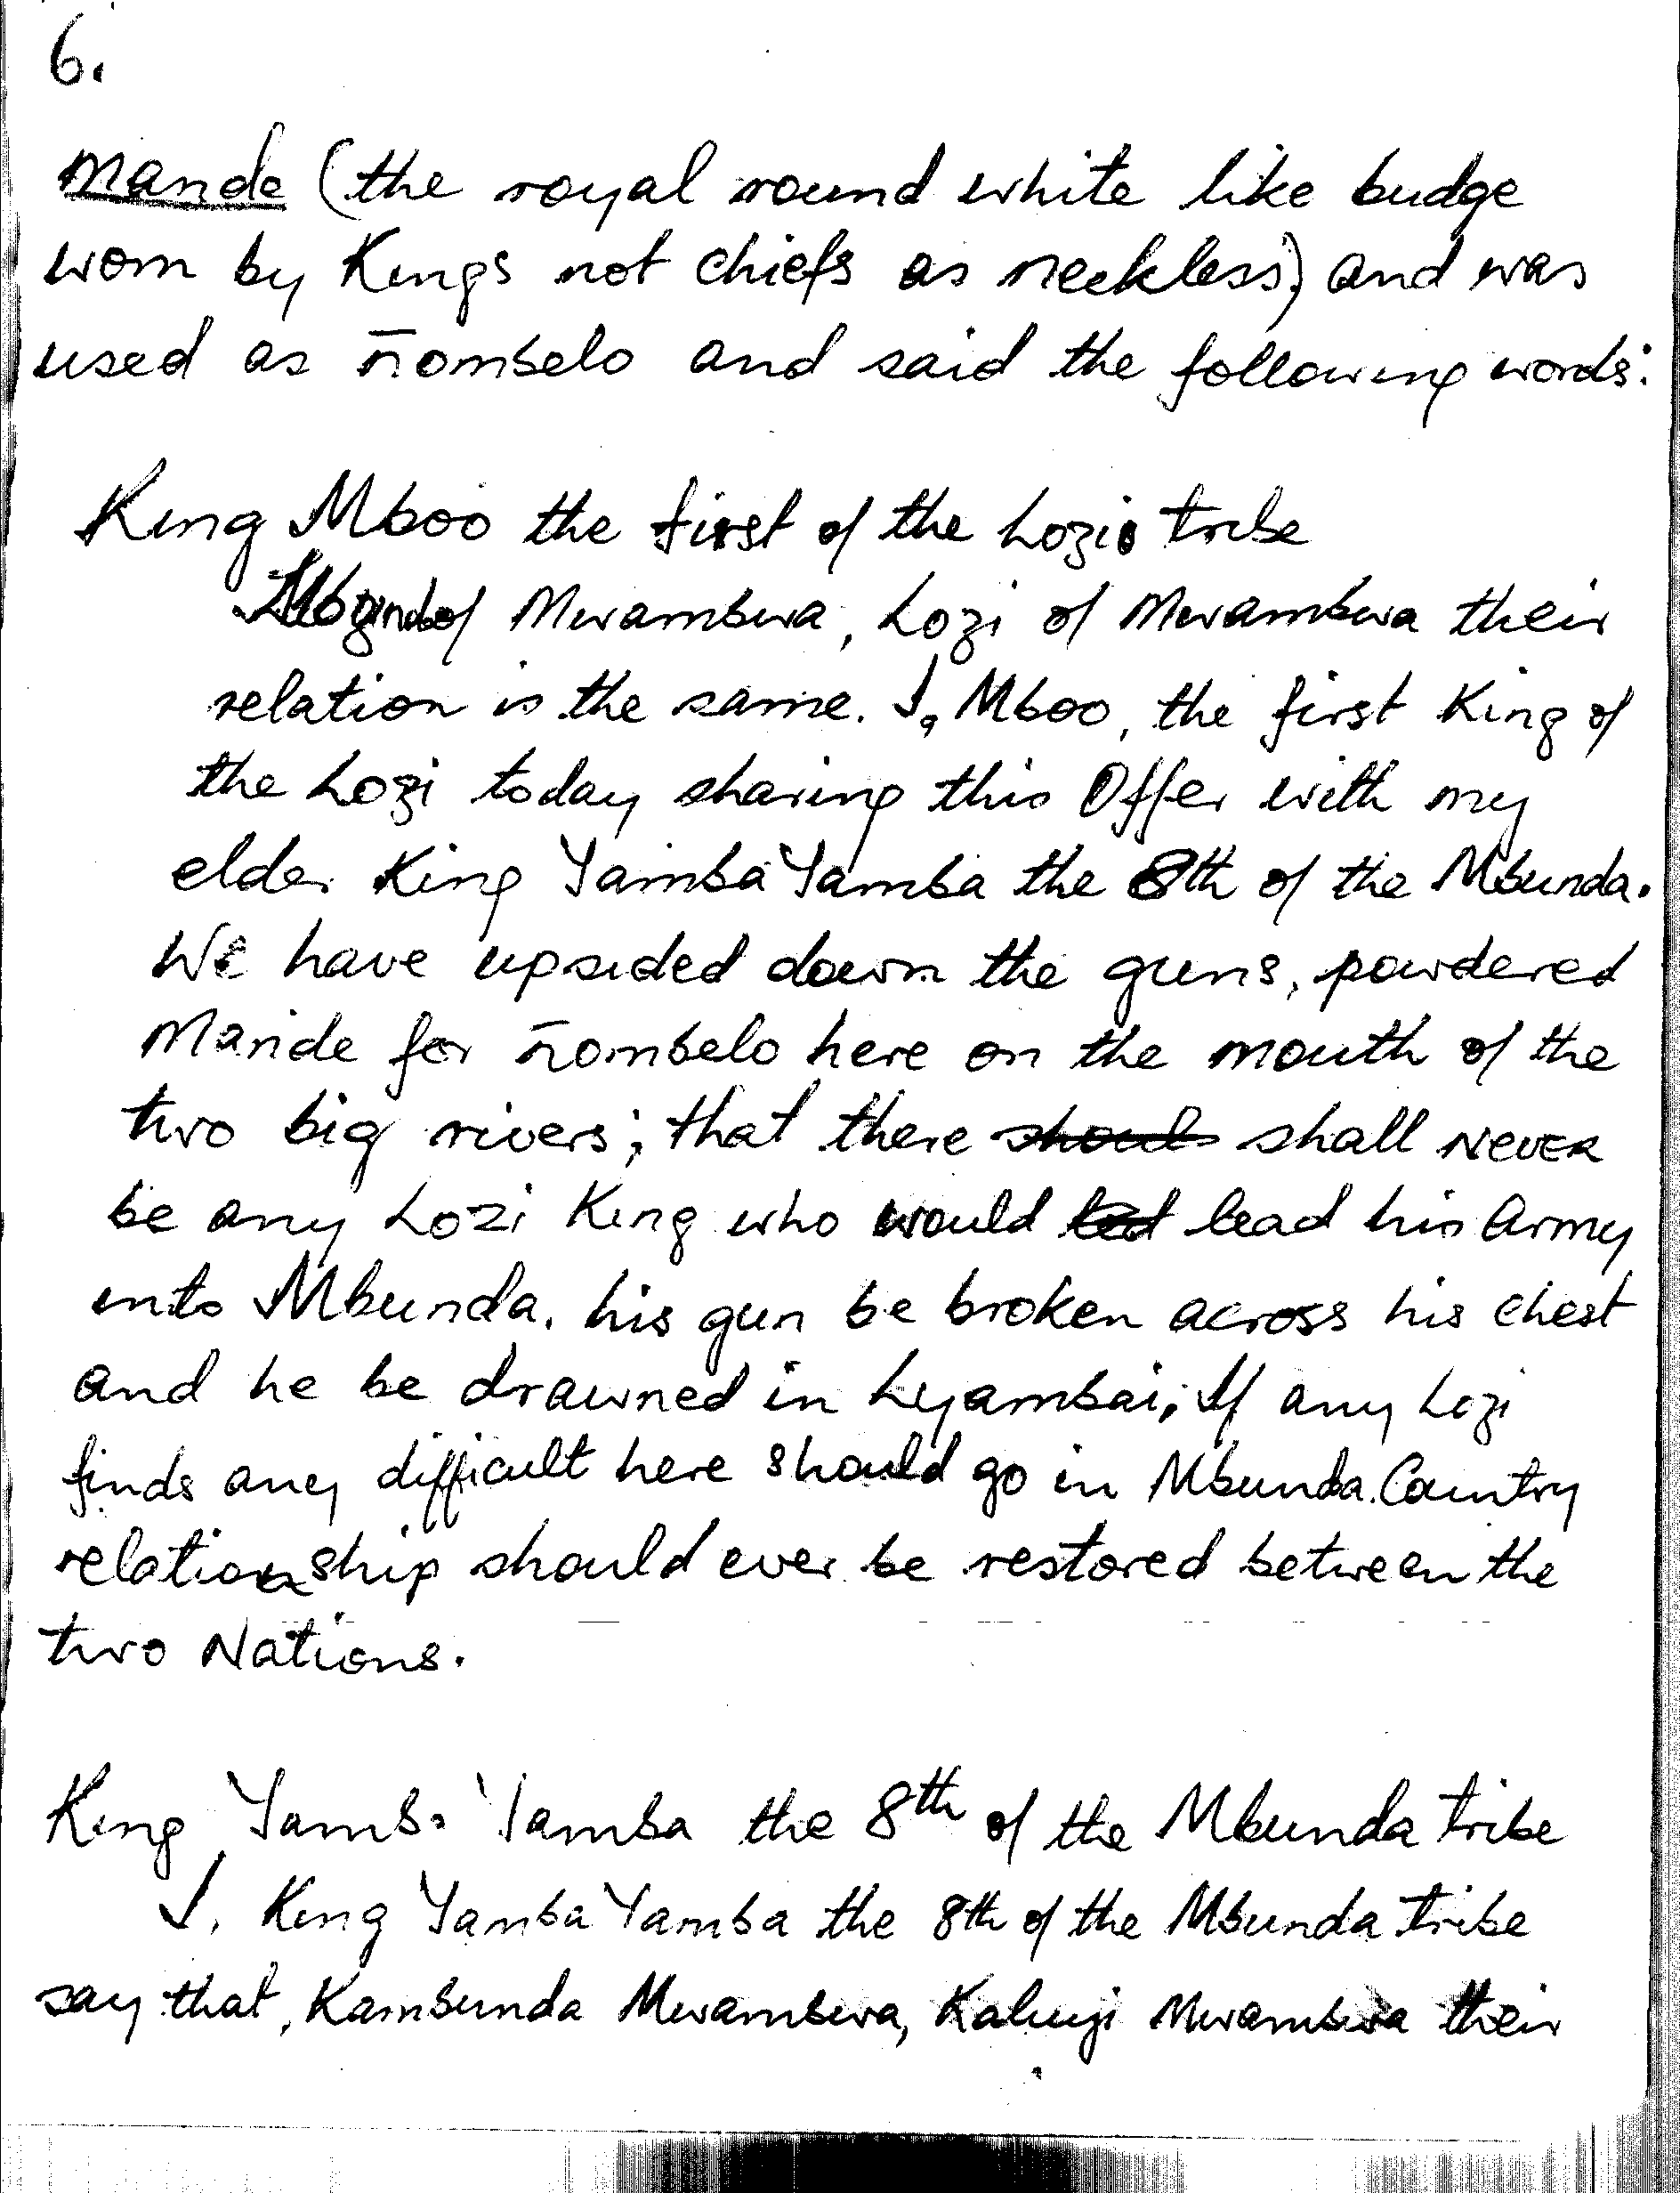 6.
Mande (the royal round white like budge
worn by Kings not chiefs as neckless) and was
used as n̄ombelo and said the following words:
King Mboo the first of the Lozi tribe
Mbunda of Mwambwa, Lozi of Mwambwa their
relation is the same. I, Mboo, the first King of
the Lozi today sharing this Offer with my
elder King Yamba Yamba the 8th of the Mbunda.
We have upsided down the guns, powdered
Mande for n̄ombelo here on the mouth of the
two big rivers; that there shoul shall NEVER
be any Lozi King who would led lead his Army
into Mbunda. his gun be broken across his chest
and he be drawned in Lyambai, If any Lozi
finds any difficult here should go in Mbunda. Country
relationship should ever be restored between the
two Nations.
King Yamba Yamba the 8th of the Mbunda tribe
I, King Yamba Yamba the 8th of the Mbunda tribe
say that, Kambunda Mwambwa, Kaluyi Mwambwa their